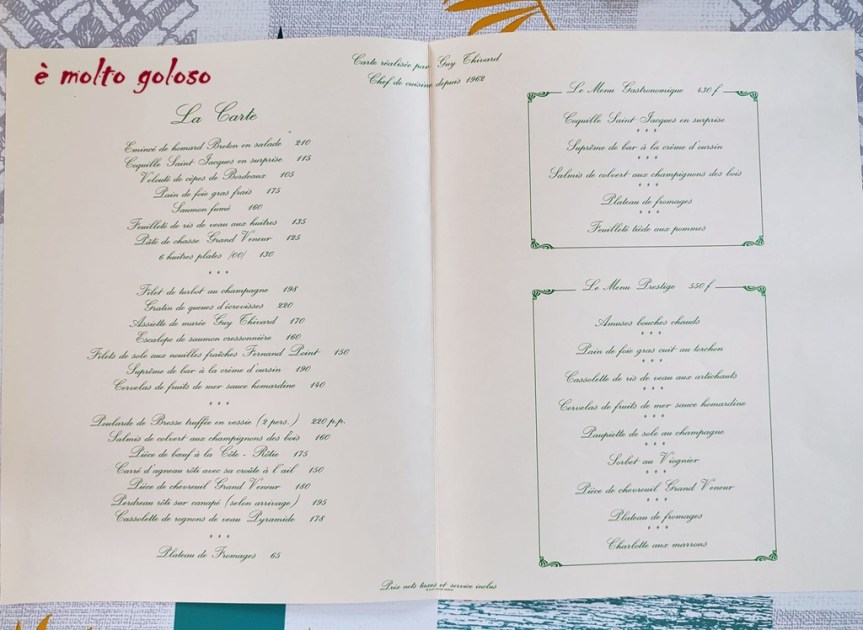 è molto goloso
Carte réalisée par Guy Thivard
Chef de cuisine depuis 1962
La Carte
Emincé de homard Breton en salade 210
Coquille Saint Jacques en surprise 115
Velouté de cèpes de Bordeaux 105
Pain de foie gras frais 175
Saumon fumé 160
Feuilleté de ris de veau aux huîtres 135
Pâté de chasse Grand Veneur 125
6 huîtres plates /00/ 130
* * *
Filet de turbot au champagne 198
Gratin de queues d'écrevisses 220
Assiette de marée Guy Thivard 170
Escalope de saumon cressonnière 160
Filets de sole aux nouilles fraîches Fernand Point 150
Suprême de bar à la crème d'oursin 190
Cervelas de fruits de mer sauce homardine 140
* * *
Poularde de Bresse truffée en vessie (2 pers.) 220 p.p.
Salmis de colvert aux champignons des bois 160
Pièce de bœuf à la Côte - Rôtie 175
Carré d'agneau rôti avec sa croûte à l'ail 150
Pièce de chevreuil Grand Veneur 180
Perdreau rôti sur canapé (selon arrivage) 195
Cassolette de rognons de veau Pyramide 178
* * *
Plateau de Fromages 65
Le Menu Gastronomique 430 f
Coquille Saint Jacques en surprise
* * *
Suprême de bar à la crème d'oursin
* * *
Salmis de colvert aux champignons des bois
* * *
Plateau de fromages
* * *
Feuilleté tiède aux pommes
Le Menu Prestige 550 f
Amuses bouches chauds
* * *
Pain de foie gras cuit au torchon
* * *
Cassolette de ris de veau aux artichauts
* * *
Cervelas de fruits de mer sauce homardine
* * *
Paupiette de sole au champagne
* * *
Sorbet au Viognier
* * *
Pièce de chevreuil Grand Veneur
* * *
Plateau de fromages
* * *
Charlotte aux marrons
Prix nets taxes et service inclus